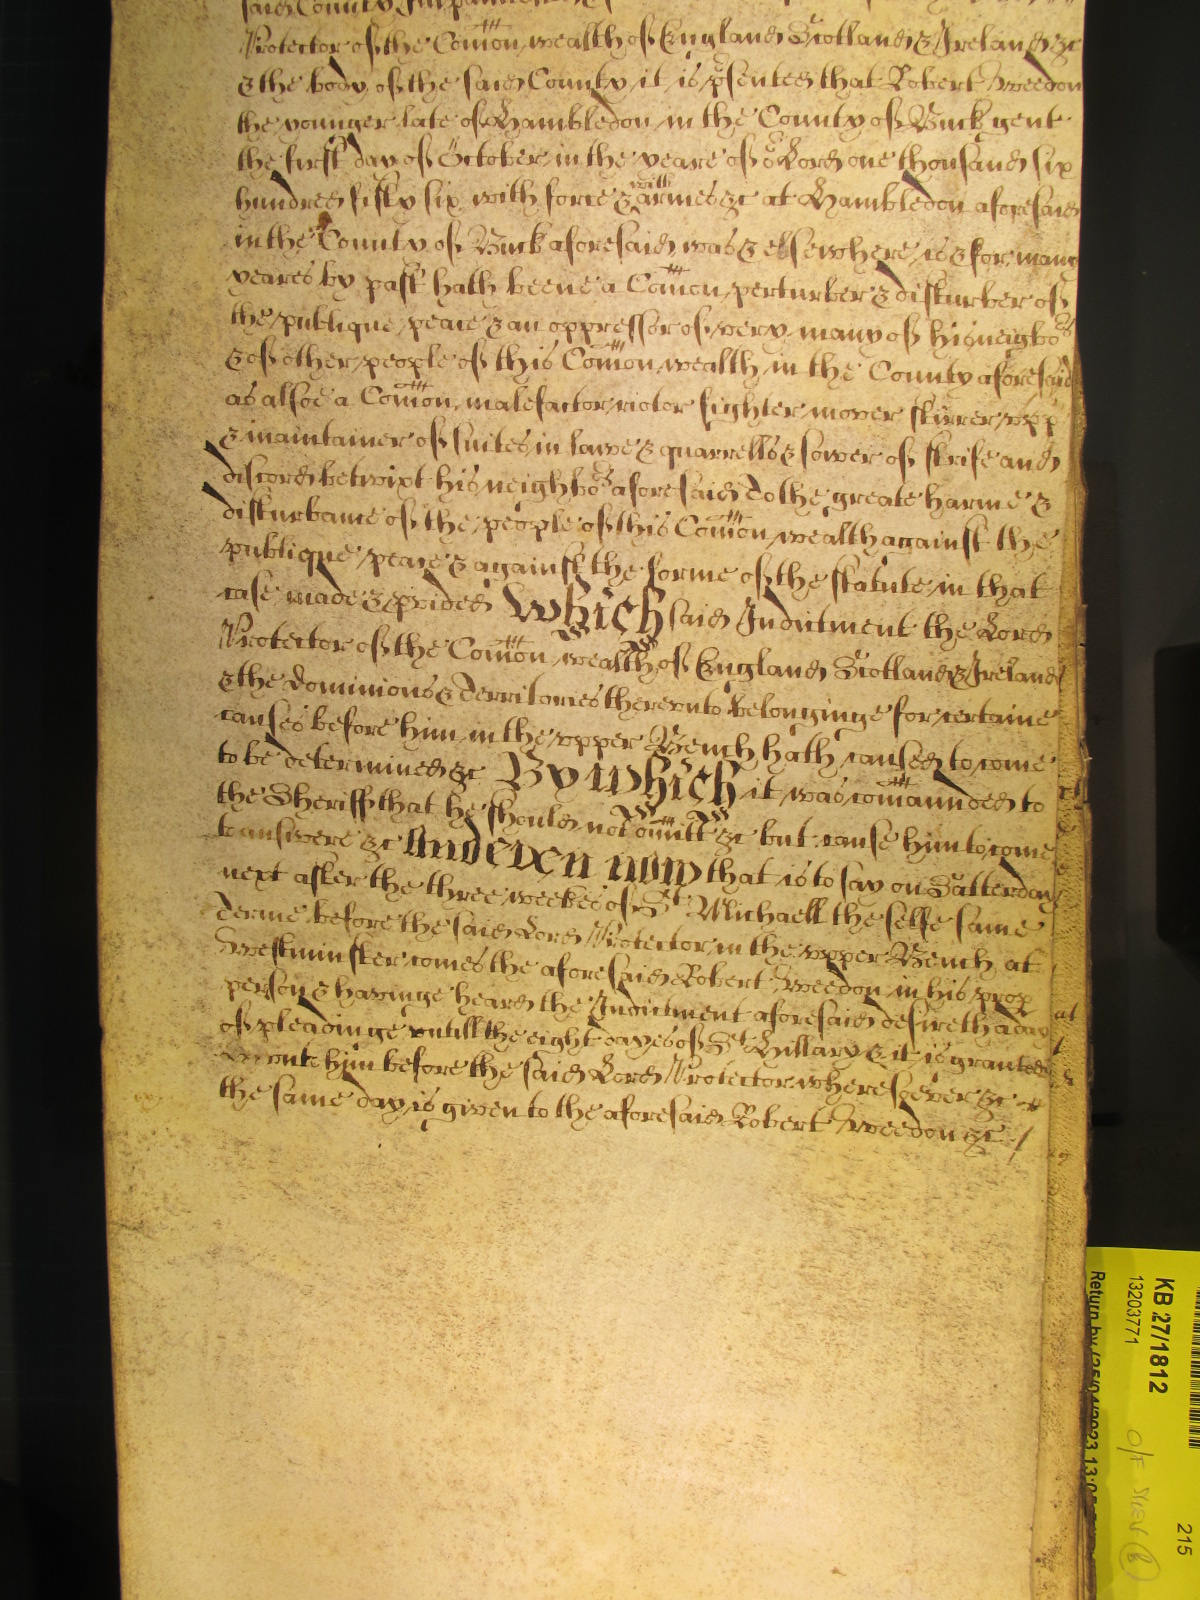 said County
Protector of the Comon wealth of England Scotland & Ireland &c
& the body of the said County it is psented that Robert Weedon
the younger late of Hambledon in the County of Buck gent
the first day of October in the yeare of or Lord one thousand six
hundred fifty six with force & armes &c at Hambledon aforesaid
with
in the County of Buck aforesaid was & elsewhere is & for many
yeares by past hath beene a Comon perturber & disturber of
the publique peace & an oppressor of very many of his neigbors
& of other people of this Comon wealth in the County aforesaid
as alsoe a Comon malefactor riotor fighter mover stirrer upp
& maintainer of suites in lawe & quarrells & sower of strife and
discord betwixt his neighbors aforesaid To the greate harme &
disturbance of the people of this Comon wealth against the
publique peace & against the forme of the statute in that
case made & pvided Which said Indictment the Lord
Protector of the Comon wealth of England Scotland & Ireland
& the dominions & Territories thereunto belonginge for certaine
causes before him in the upper Bench hath caused to come
to be determined &c By which it was comaunded to
the Sheriff that he should not omitt &c but cause him to come
to answere &c And even now that is to say on Satterday
next after the three weekes of St Michaell the selfe same
Terme before the said Lord Protector in the upper Bench at
Westminster comes the aforesaid Robert Weedon in his prop
person & havinge heard the Indictment aforesaid desireth a day
of pleadinge untill the eight dayes of St Hillary & it is granted
unto him before the said Lord Protector wheresoever &c
the same day is given to the aforesaid Robert Weedon &c
at
KB 27/1812
13203771
Return by (25/04/2023 13:0
215